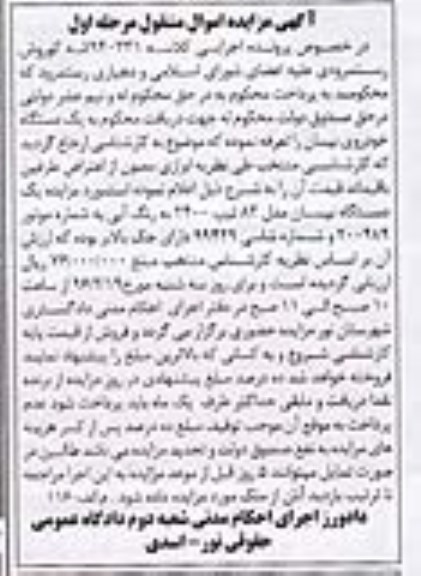 آگهی مزایده اموال منقول مرحله اول
در خصوص پرونده اجرایی کلاسه ۹۴۰۲۳۱ له کوروش
رستمرودی علیه اعضای شورای اسلامی و دهیاری رستمرود که
محکومند به پرداخت محکوم به در حق محکوم له و نیم عشر دولتی
در حق صندوق دولت محکوم له جهت دریافت محکوم به یک دستگاه
خودروی نیسان را تعرفه نموده که موضوع به کارشناسی ارجاع گردید
که کارشناسی منتخب طی نظریه ابرازی مصون از اعتراض طرفین
باقیمانده قیمت آن را به شرح ذیل اعلام نموده مزایده یک
دستگاه نیسان مدل ۸۳ تیپ ۲۴۰۰ به رنگ آبی به شماره موتور
۲۰۰۹۸۹ و شماره شاسی ۹۹۴۲۹ دارای جک بالابر بوده که ارزش
آن بر اساس نظریه کارشناس منتخب مبلغ ۷۴/۰۰۰/۰۰۰ ریال
ارزیابی گردیده است و برای روز سه شنبه مورخ ۹۶/۲/۱۹ از ساعت
۱۰ صبح الی ۱۱ صبح در دفتر اجرای احکام مدنی دادگستری
شهرستان نور مزایده حضوری برگزار می گردد و فروش از قیمت پایه
کارشناسی شروع و به کسانی که بالاترین مبلغ را پیشنهاد نمایند
فروخته خواهد شد ده درصد مبلغ پیشنهادی در روز مزایده از برنده
نقدا دریافت و مابقی حداکثر ظرف یک ماه باید پرداخت شود عدم
پرداخت به موقع آن موجب توقیف مبلغ ده درصد پس از کسر هزینه
های مزایده به نفع صندوق دولت و تجدید مزایده می باشد طالبین در
صورت تمایل میتوانند ۵ روز قبل از موعد مزایده به این اجرا مراجعه
تا ترتیب بازدید آنان از مورد مزایده داده شود . م/الف ۱۱۶
دادورز اجرای احکام مدنی شعبه دوم دادگاه عمومی
حقوقی نور - اسدی